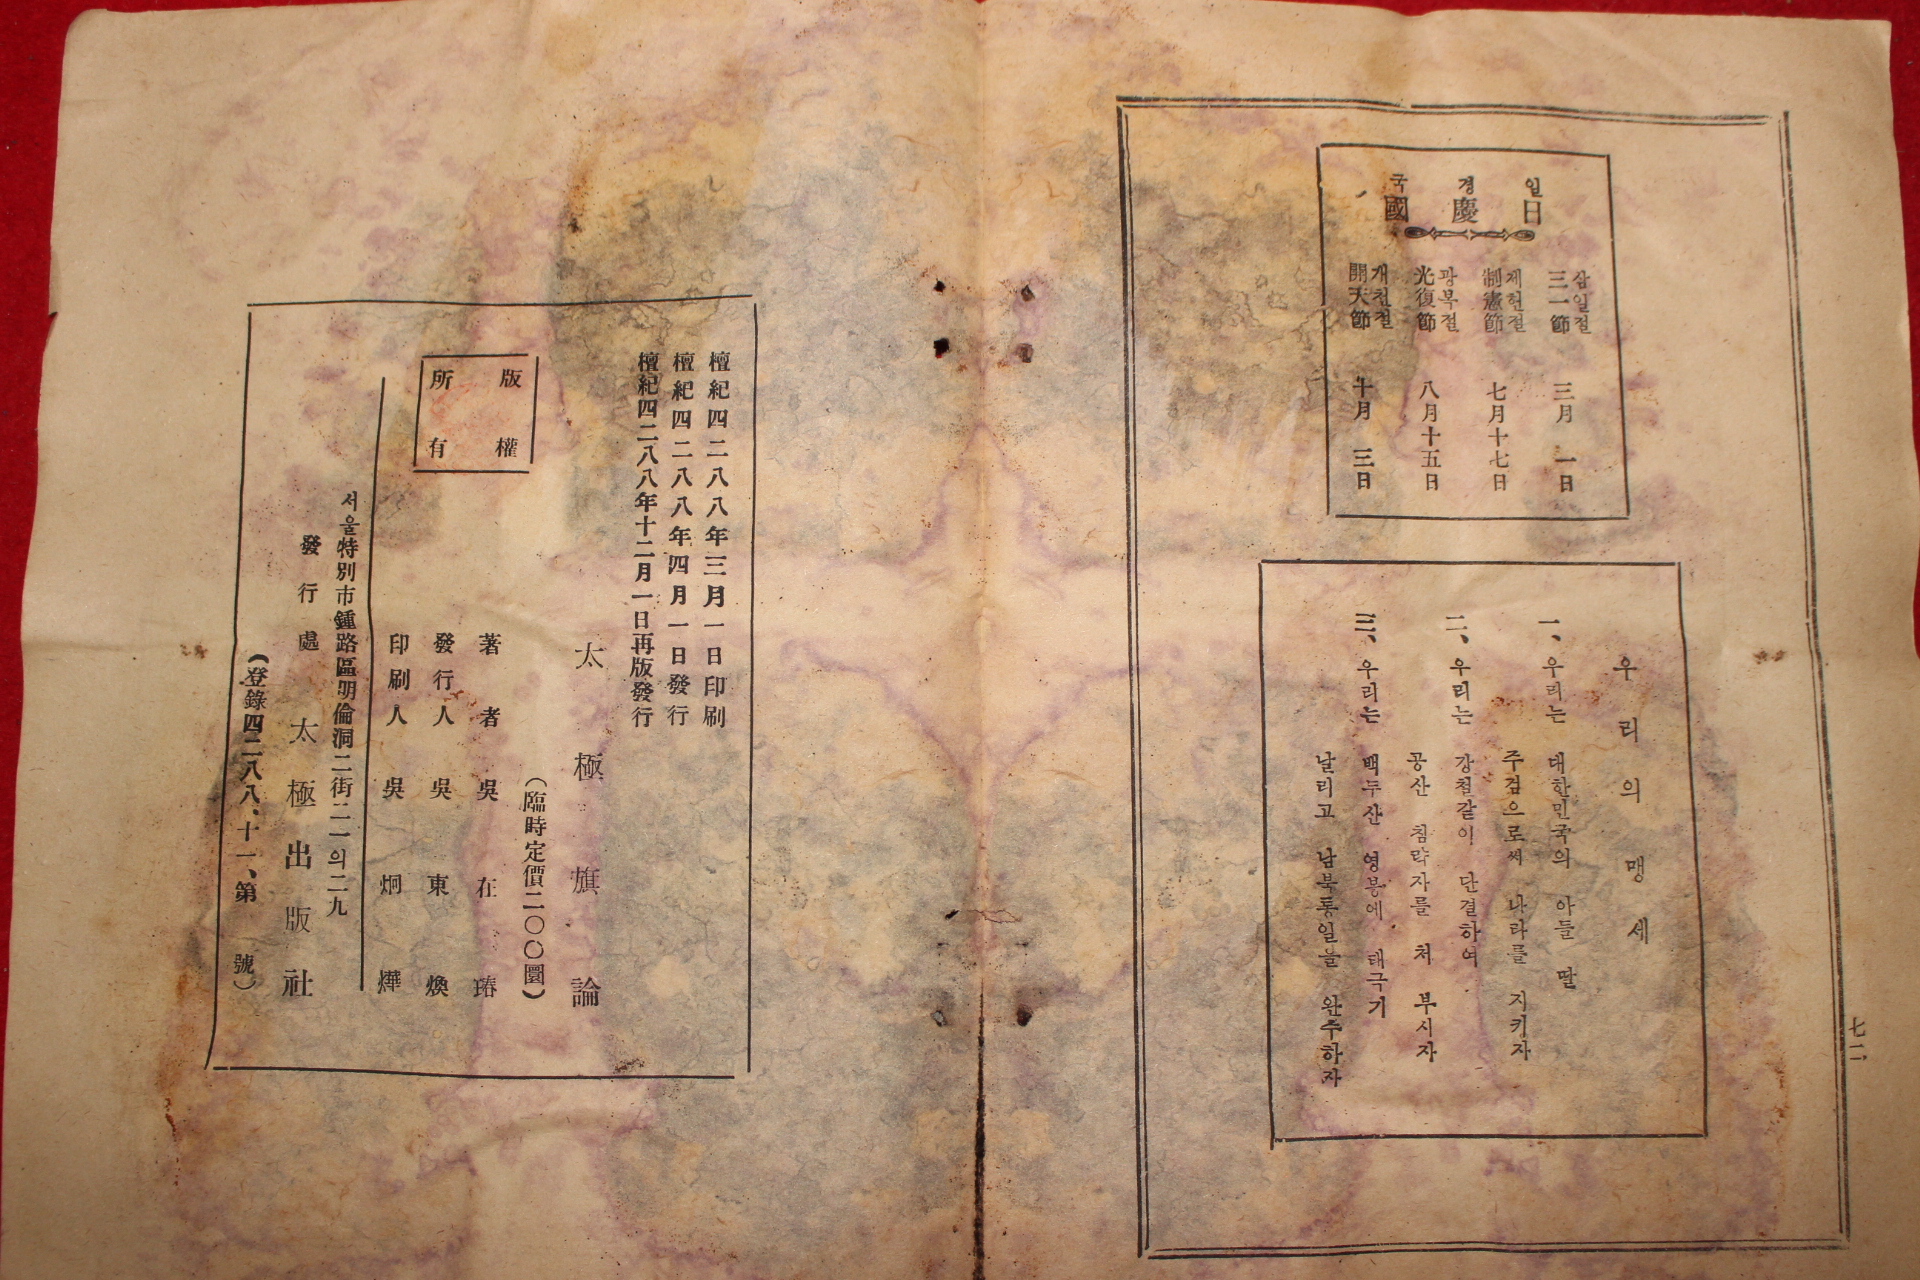 국 경 일
國 慶 日
삼일절
三一節 三月 一日
제헌절
制憲節 七月十七日
광복절
光復節 八月十五日
개천절
開天節 十月 三日
우리의 맹세
一、우리는 대한민국의 아들 딸
주검으로써 나라를 지키자
二、우리는 강철같이 단결하여
공산 침략자를 처 부시자
三、우리는 백두산 영봉에 태극기
날리고 남북통일을 완수하자
七二
檀紀四二八八年三月一日印刷
檀紀四二八八年四月一日發行
檀紀四二八八年十二月一日再版發行
太極旗論
(臨時定價二〇〇圜)
版權
所有
著者 吳在璿
發行人 吳東煥
印刷人 吳炯燁
서울特別市鍾路區明倫洞二街二一의二九
發行處 太極出版社
(登錄四二八八、十一、第 號)